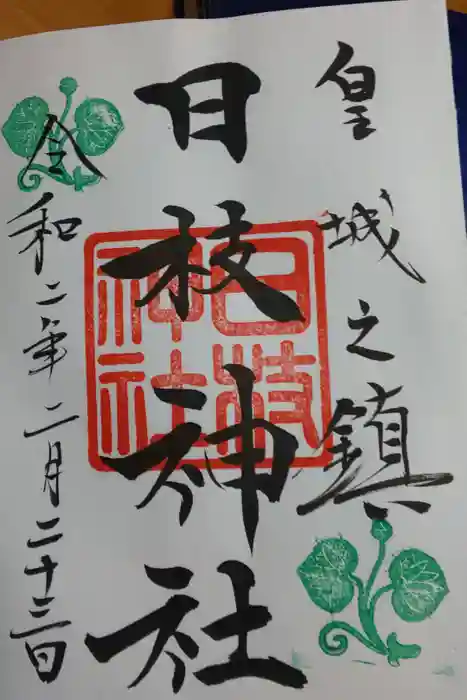 皇城之鎮
日枝神社
日枝神社
令和二年二月二十三日